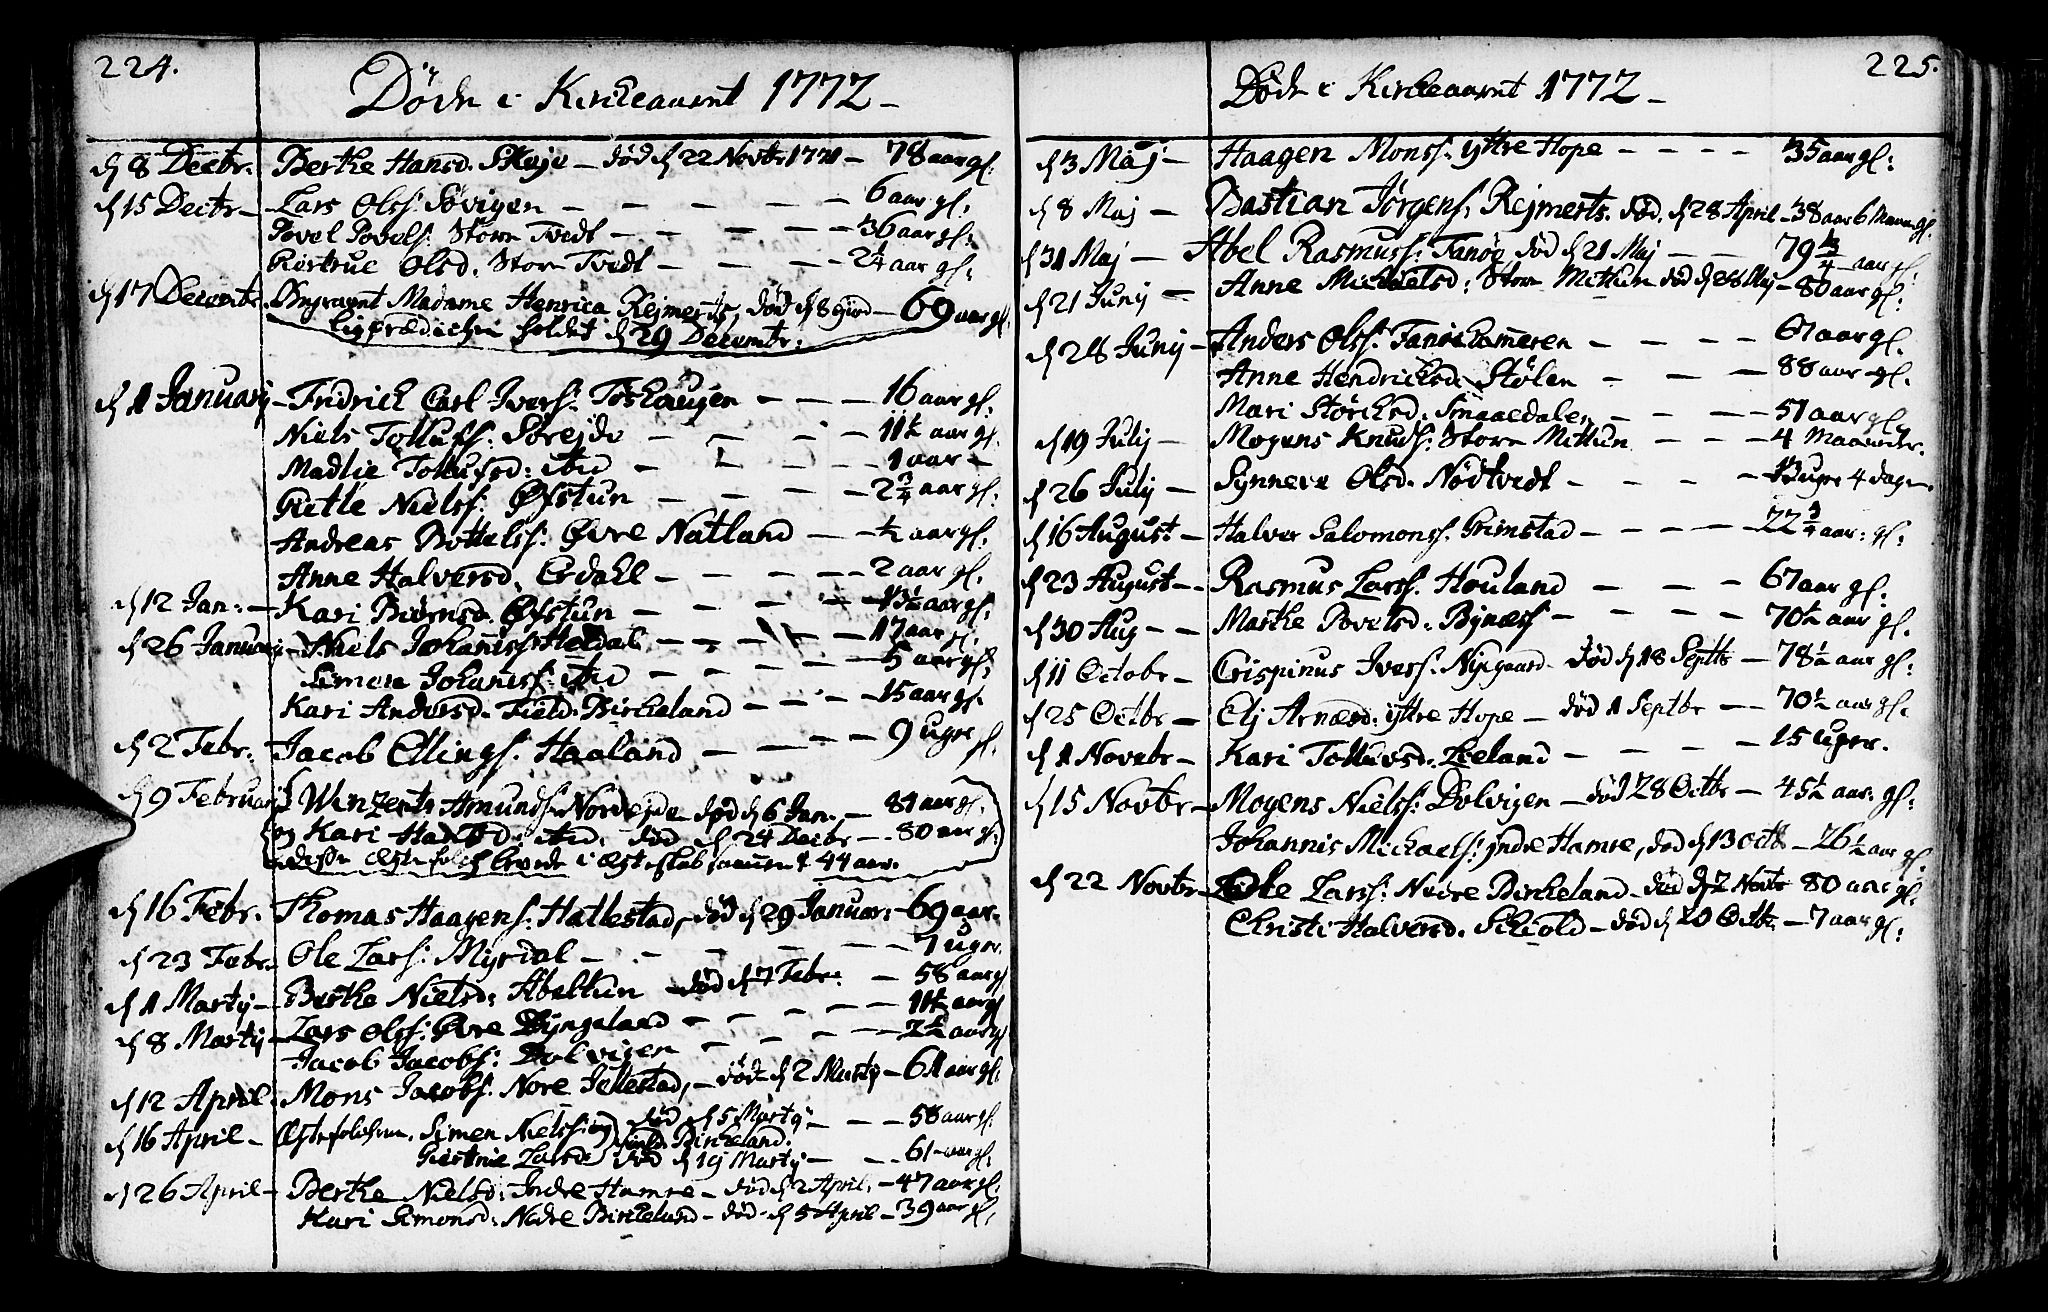 224.
Døde i Kirkeaaret 1772 –
d 8 Decbr. Berthe Hansd. Skeje – død d 22 Novbr 1771 – 78 aar gl:
d 15 Decbr – Lars Olss: Søvigen – – – – – 6 aar gl.
Povel Povels: Store Tvedt – – – – – 36 aar gl:
Giertrue Olsd. Store Tvedt – – – – 2¼ aar gl:
d 17 Decembr. Begravet Madame Henrica Rejmerts, død d 8 hujus – 69 aar gl.
Ligprædicken holdet d 29 Decembr:
d 1 Januarij – Fridrich Carl Ivers: Toshaugen – – – 16 aar gl:
Niels Tollufs: Søreide – – – – 11½ aar gl.
Madlie Tollufsd: ibid – – – – 1 aar –
Gietle Nielss: Øfstun – – – – 2¾ aar gl:
Andreas Bottelss: Øvre Natland – – ½ aar gl:
Anne Halversd. Erdahl – – – – – 2 aar gl.
d 12 Jan: – Kari Biørnsd. Øfstun – – – – 13½ aar gl:
d 26 Januarij – Niels Johaniss: Heldal – – – – 17 aar gl.
Simon Johaniss: ibid – – – – 5 aar gl:
Kari Andersd. Field-Birkeland – – – – 15 aar gl.
d 2 Febr. Jacob Ellings. Haaland – – – – 9 uger gl.
d 9 Februarij Winzents Amunds: Nordejde død d 6 Jan. – 81 aar gl:
og Kari Hansd: ibid: død d 24 Decbr – 80 aar gl:
disse ægtefolch levede i ægteskab sammen i 44 aar.
d 16 Febr. Thomas Haagens: Hatlestad, død d 29 Januar: – 69 aar.
d 23 Febr. Ole Lars: Myrdal – – – – – 7 uger.
d 1 Martij – Berthe Nielsd: Abeltun død d 7 Febr: – 58 aar gl
d 8 Martij – Lars Olss: Øvre Dyngeland – – – – 11½ aar gl
Jacob Jacobs: Dolvigen – – – – 2½ aar gl
d 12 April: Mons Jacobs: Nore Jellestad, – død d 2 Martij – 61 aar gl.
d 16 April – Ægtefolchene, Simen Nielss: og død d 5 Martij – – 58 aar gl.
Field-Birkeland.
Giertrue Larsd. død d 19 Martij – – 61 aar gl:
d 26 April – Berthe Nielsd: Indre Hamre – død d 2 April. – 47 aar gl.
Kari Simonsd: Nedre Birkeland – død d 5 April – 39 aar gl.
225.
Døde i Kirkeaaret 1772 –
d 3 Maj – Haagen Monss: yttre Hope – – – – 35 aar gl:
d 8 Maj – Bastian Jørgens: Rejmerts. død. d 28 April – 38 aar 6 Maan: gl.
d 31 Maj – Abel Rasmuss: Fanøe død d 21 Maj – – 79¾ aar gl.
d 21 Junij – Anne Michelsd: Store Mitthun død d 28 Maj – 80 aar gl:
d 28 Junij – Anders Olss: Fanehammeren – – – – 61 aar gl.
Anne Hendrichsd. Stølen – – – – 88 aar gl.
Mari Størchsd. Smaaedalen – – – – 51 aar gl.
d 19 Julij – Mogens Knuds: Store Mittun – – – 4 Maaneder.
d 26 Julij – Synneve Olsd. Nødtvedt – – – – 13 uger 4 dage.
d 16 August – Halver Salomons. Grimstad – – – – 22¾ aar: gl:
d 23 August – Rasmus Larss. Houland – – – – 67 aar gl:
d 30 Aug – – Marthe Povelsd. Bynæss – – – – – 70½ aar gl.
d 11 Octobr – Crispinus Ivers: Nygaard – død d 18 Septb – 78½ aar gl:
d 25 Octbr – Elj Arnesd: yttre Hope – død 1 Septbr – 70½ aar gl.
d 1 Novebr – Kari Tolluvsd. Lieland – – – – – 15 uger.
d 15 Novbr – Mogens Nielss: Dolvigen – død 28 Octbr – 45½ aar: gl:
Johannis Michaels: yndre Hamre, død d 13 Octb – 26½ aar gl.
d 22 Novbr – Gitle Larss: Nedre Birkeland – død d 2 Novbr 80 aar gl.
Christi Halversd. Schiold – død d 20 Octb. – 7 aar gl: